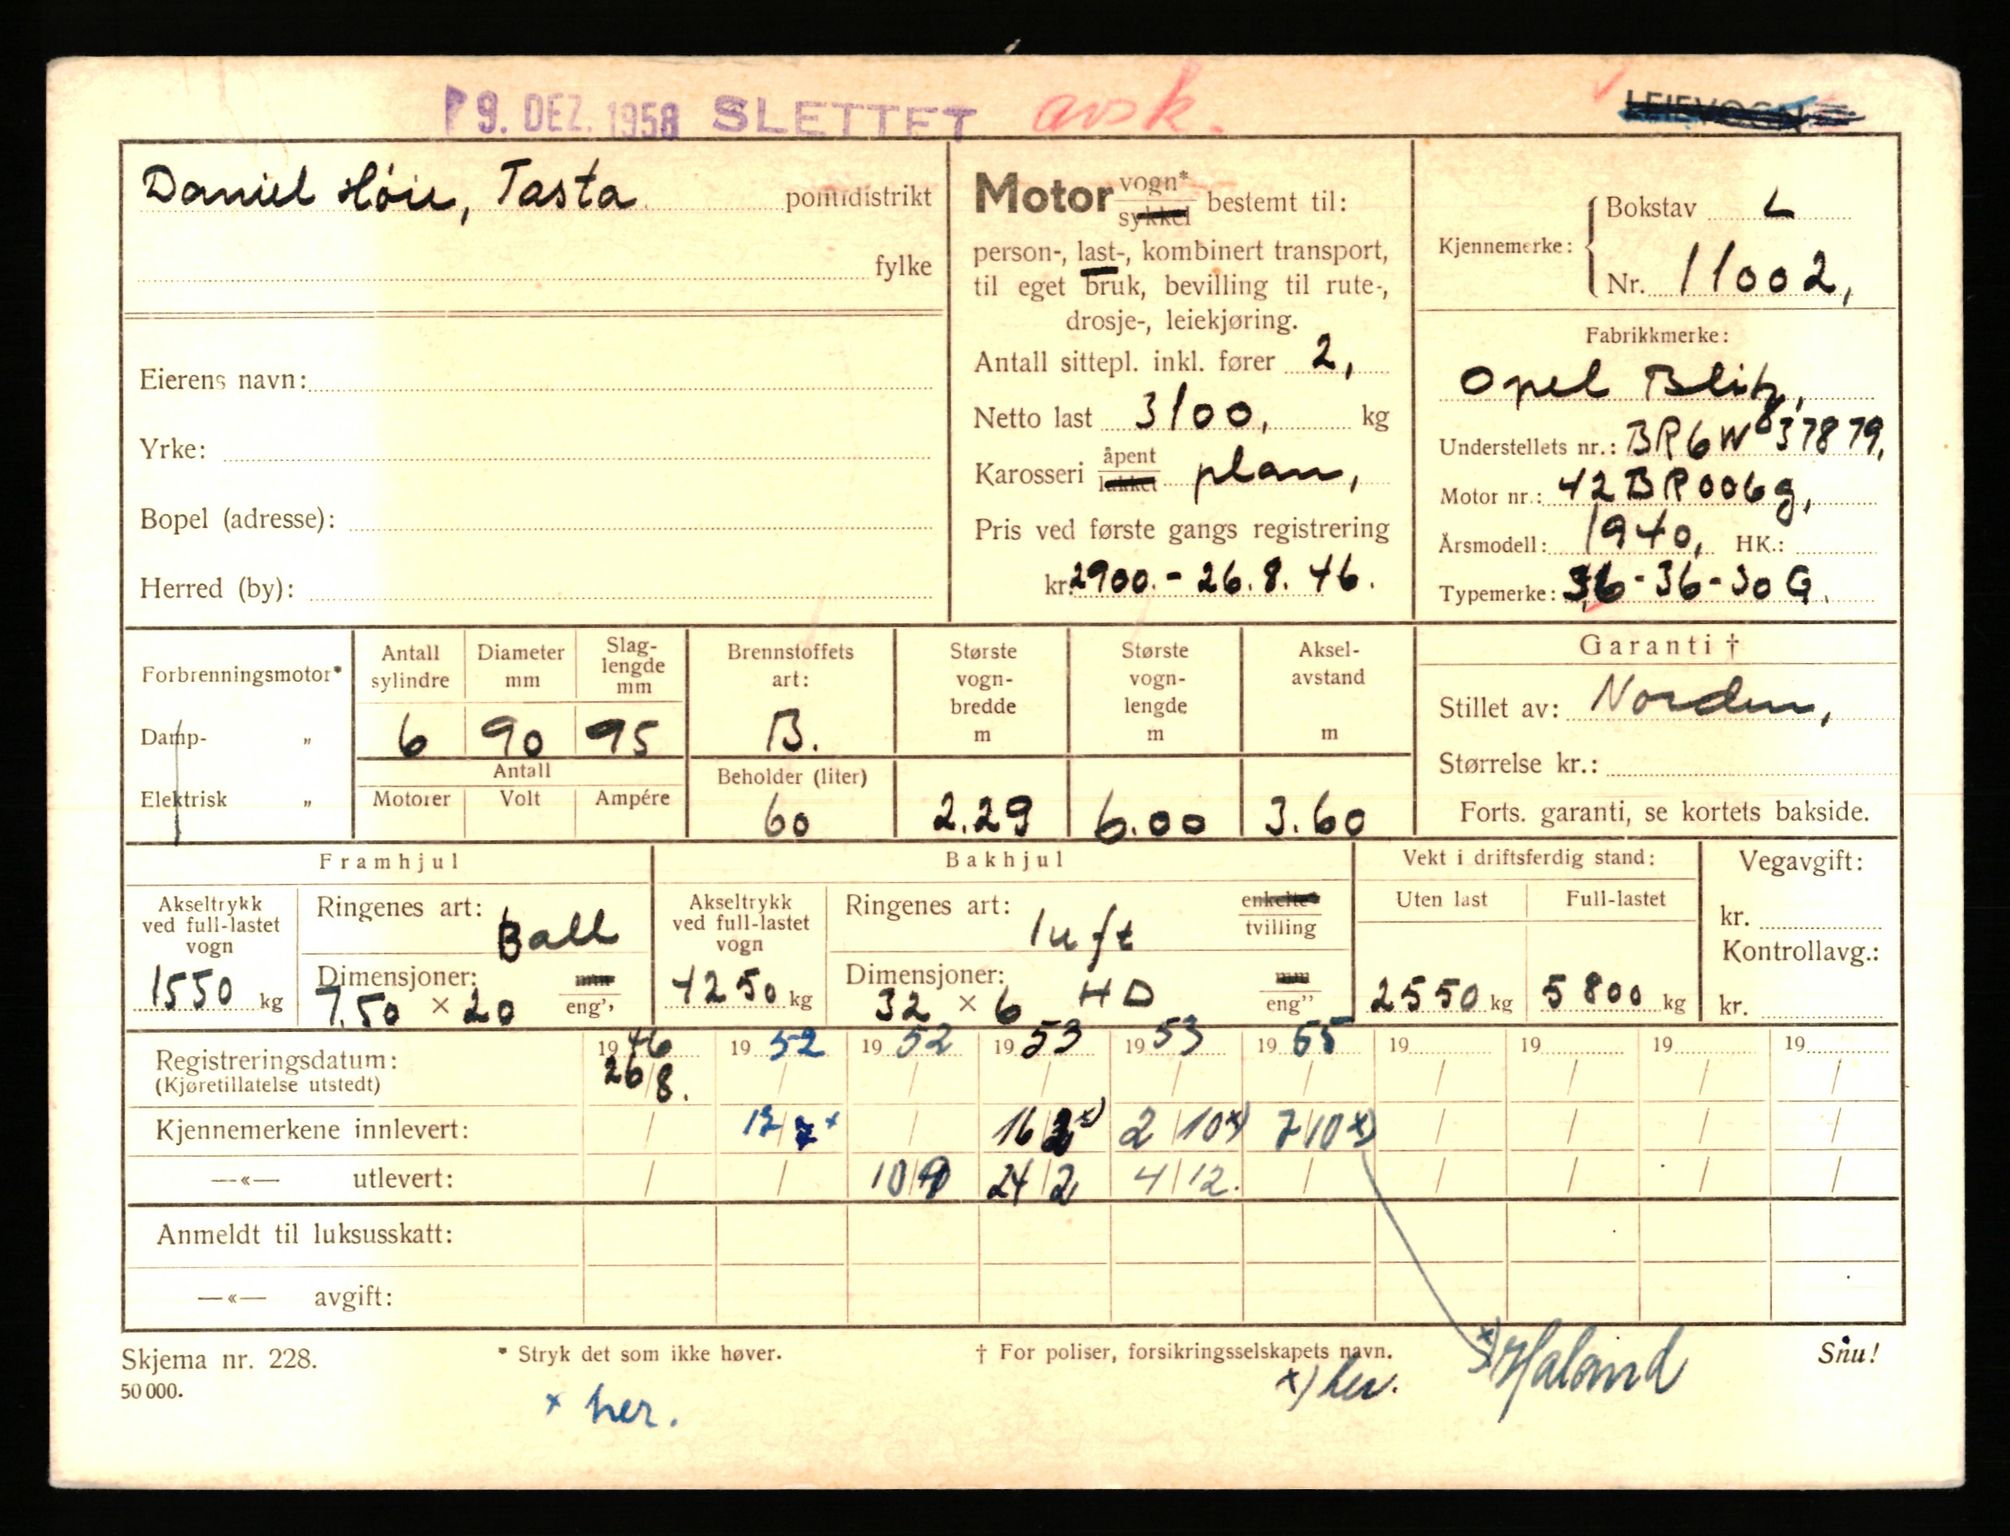 9. DEZ. 1958 SLETTET avsk.
LEIEVOGN
Daniel Höie, Tasta politidistrikt
fylke
Eierens navn:
Yrke:
Bopel (adresse):
Herred (by):
Motor vogn* sykkel bestemt til:
person-, last-, kombinert transport,
til eget bruk, bevilling til rute-,
drosje-, leiekjøring.
Antall sittepl. inkl. fører 2,
Netto last 3100, kg
Karosseri åpent lukket plan,
Pris ved første gangs registrering
kr. 2900.- 26.8.46.
Kjennemerke: Bokstav L
Nr. 11002,
Fabrikkmerke:
Opel Blitz,
Understellets nr.: BR6W837879,
Motor nr.: 42BR006g,
Årsmodell: 1940, HK.:
Typemerke: 3,6-36-30G.
Forbrenningsmotor*
Damp- „
Elektrisk „
Antall sylindre 6
Diameter mm 90
Slag-lengde mm 95
Antall
Motorer Volt Ampére
Brennstoffets art: B.
Beholder (liter) 60
Største vogn-bredde m 2.29
Største vogn-lengde m 6.00
Aksel-avstand m 3.60
Garanti †
Stillet av: Norden,
Størrelse kr.:
Forts. garanti, se kortets bakside.
Framhjul
Akseltrykk ved full-lastet vogn 1550 kg
Ringenes art: Ball
Dimensjoner: 7.50 × 20 mm eng''
Bakhjul
Akseltrykk ved full-lastet vogn 4250 kg
Ringenes art: luft enkelte* tvilling
Dimensjoner: 32 × 6 HD mm eng''
Vekt i driftsferdig stand:
Uten last Full-lastet
2550 kg 5800 kg
Vegavgift:
kr.
Kontrollavg.:
kr.
Registreringsdatum: 1946 1952 1952 1953 1953 1955 19 19 19 19
(Kjøretillatelse utstedt) 26/8. / / / / / / / / /
Kjennemerkene innlevert: / 12/7x / 16/2x) 2/10x) 7/10x) / / / /
—«— utlevert: / / 10/9 24/2 4/12. / / / / /
Anmeldt til luksusskatt:
—«— avgift:
Skjema nr. 228.
50 000.
* Stryk det som ikke høver.
† For poliser, forsikringsselskapets navn.
Snu!
x her.
x) her.
x) Haland